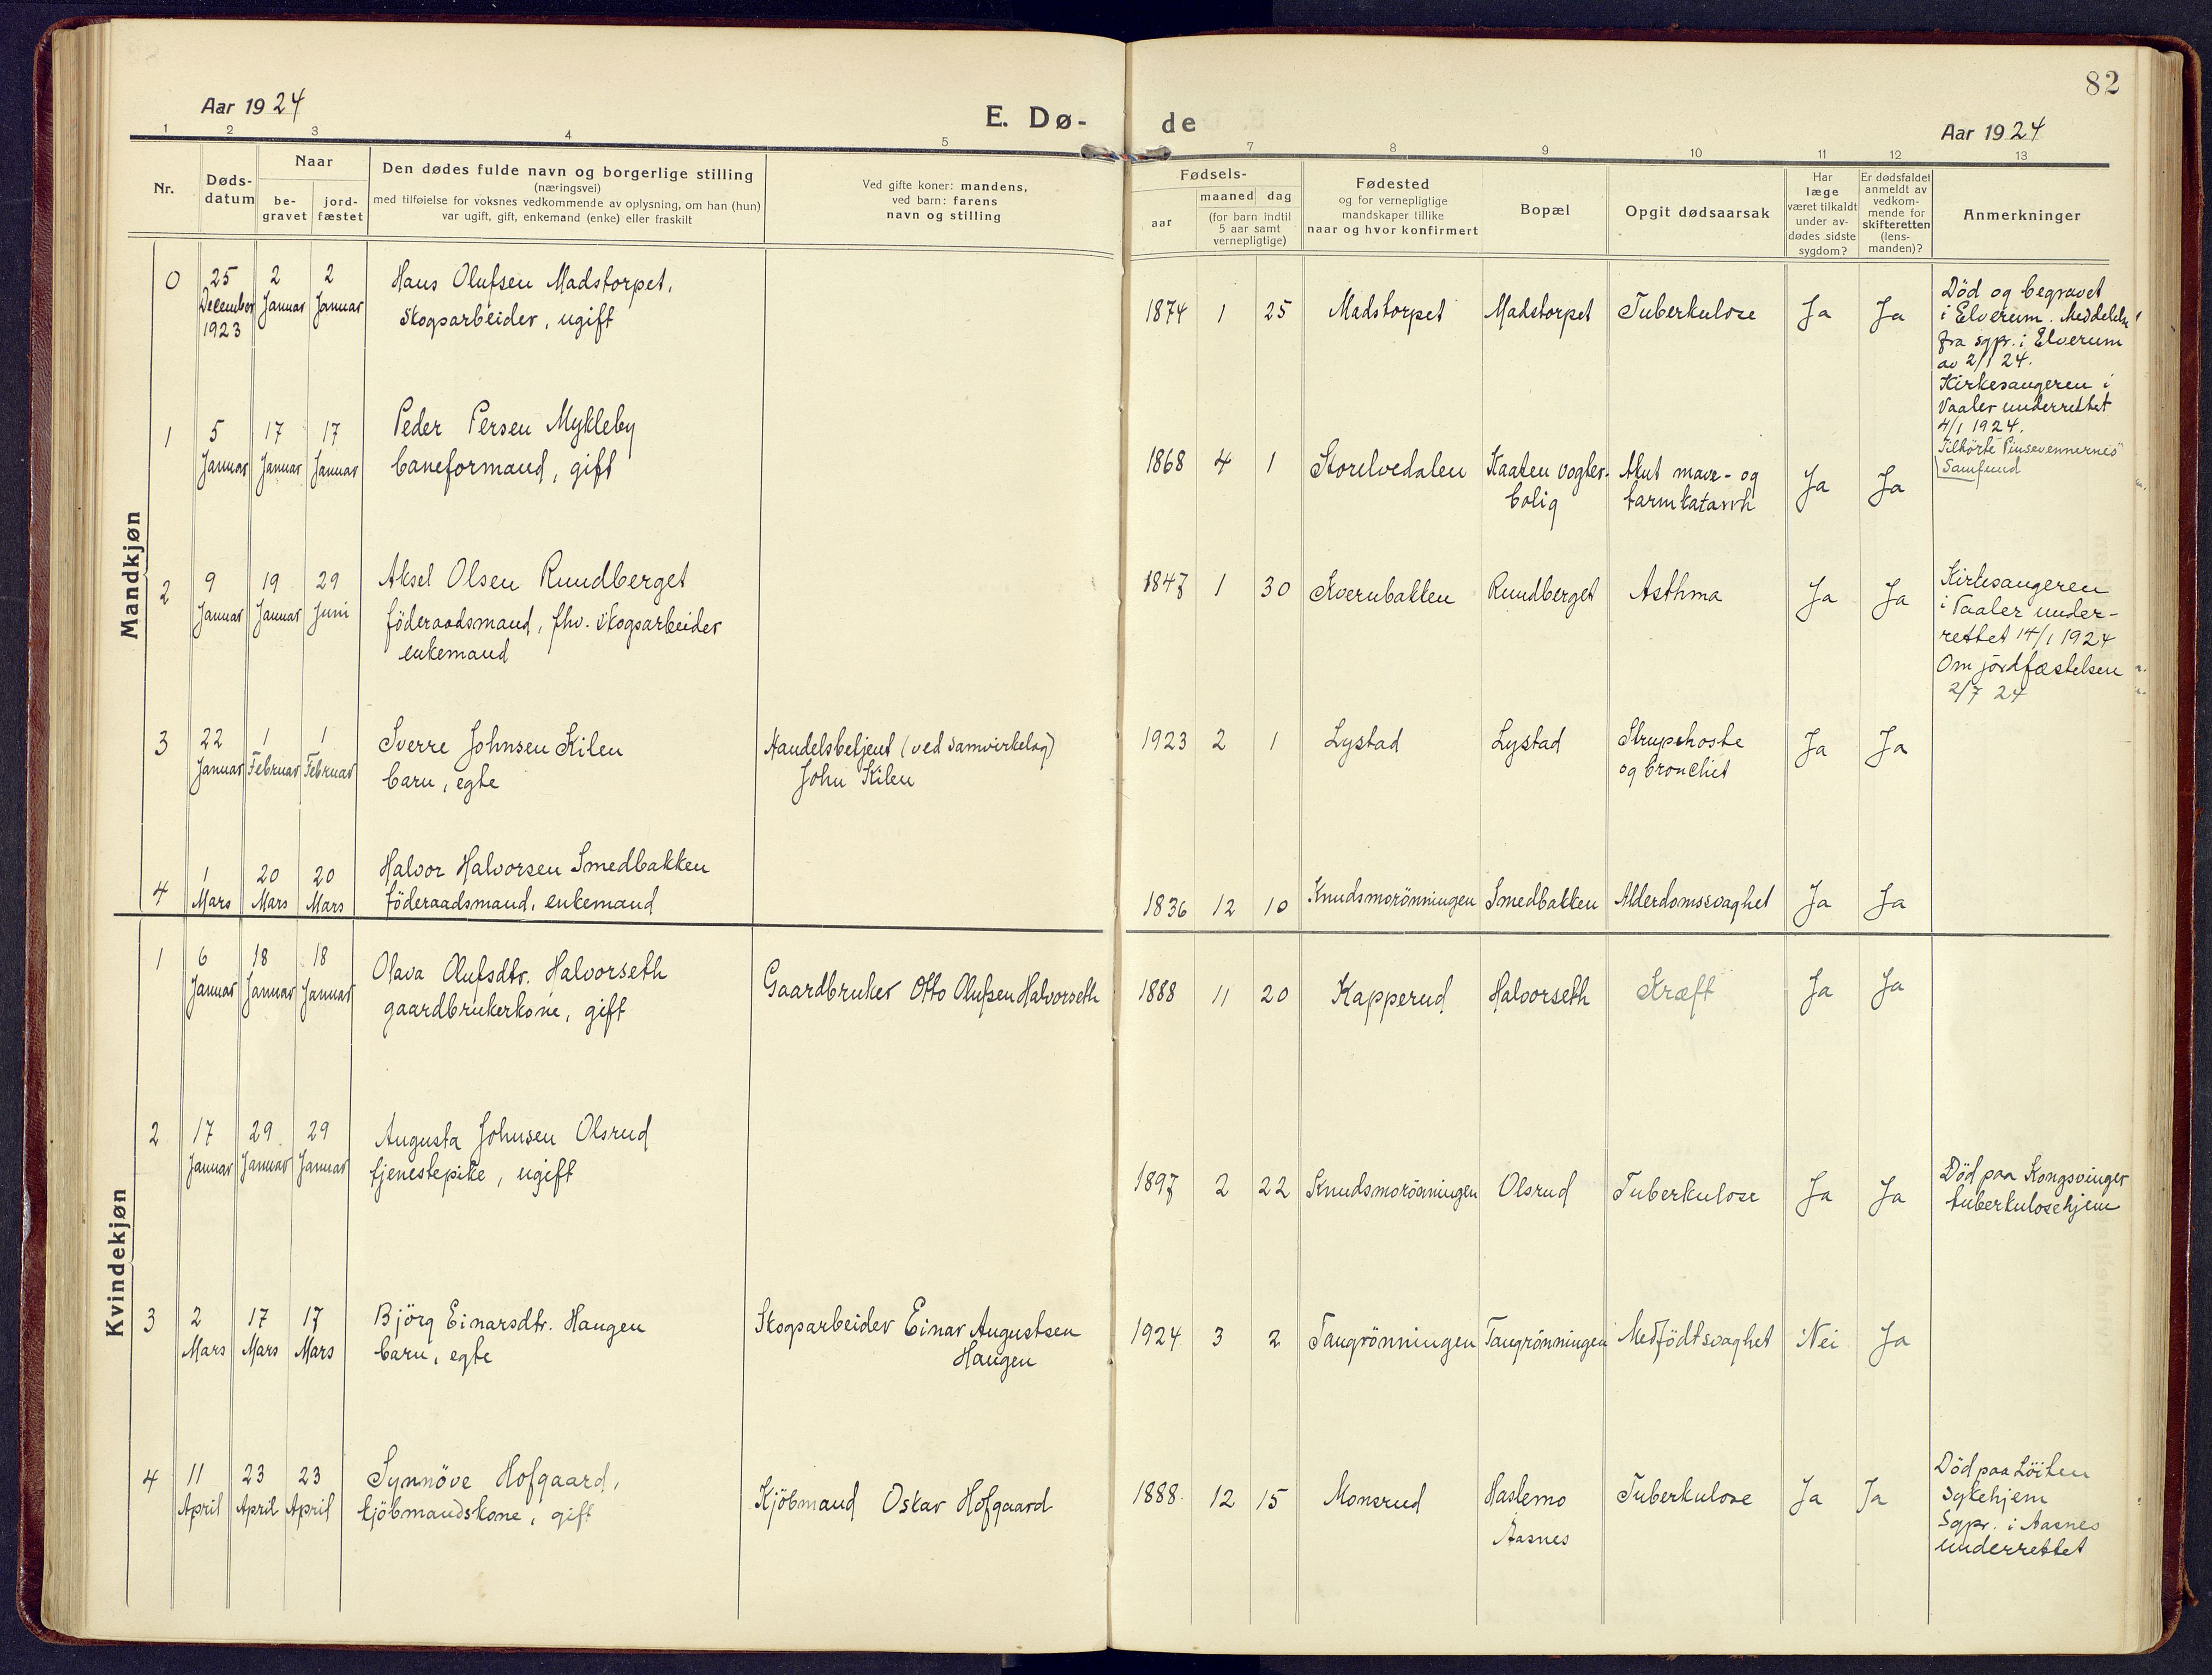 82
Aar 1924
E. Dø-
de
Aar 1924
1 2 3 4 5 7 8 9 10 11 12 13
Nr.
Døds-
datum
Naar
be-
gravet
jord-
fæstet
Den dødes fulde navn og borgerlige stilling
(næringsvei)
med tilføielse for voksnes vedkommende av oplysning, om han (hun)
var ugift, gift, enkemand (enke) eller fraskilt
Ved gifte koner: mandens,
ved barn: farens
navn og stilling
Fødsels-
aar
maaned dag
(for barn indtil
5 aar samt
vernepligtige)
Fødested
og for vernepligtige
mandskaper tillike
naar og hvor konfirmert
Bopæl
Opgit dødsaarsak
Har
læge
været tilkaldt
under av-
dødes sidste
sygdom?
Er dødsfaldet
anmeldt av
vedkom-
mende for
skifteretten
(lens-
manden)?
Anmerkninger
Mandkjøn
0
25
December
1923
2
Januar
2
Januar
Hans Olufsen Madstorpet,
skogsarbeider, ugift
1874 1 25
Madstorpet
Madstorpet
Tuberkulose
Ja
Ja
Død og begravet
i Elverum. Meddelelse
fra sgpr. i Elverum
av 2/1 24.
Kirkesangeren i
Vaaler underrettet
4/1 1924.
1
5
Januar
17
Januar
17
Januar
Peder Persen Mykleby
baneformand, gift
1868 4 1
Storelvedalen
Kaaten vogter-
bolig
Akut mave- og
tarmkatarrh
Ja
Ja
Tilhörte Pinsevennernes
Samfund
2
9
Januar
19
Januar
29
Juni
Aksel Olsen Rundberget
föderaadsmand, fhv. skogsarbeider
enkemand
1847 1 30
Kvernbakken
Rundberget
Asthma
Ja
Ja
Kirkesangeren
i Vaaler under-
rettet 14/1 1924
Om jordfæstelsen
2/7 24
3
22
Januar
1
Februar
1
Februar
Sverre Johnsen Kilen
barn, egte
Handelsbetjent (ved Samvirkelag)
John Kilen
1923 2 1
Lystad
Lystad
Strupehoste
og bronchit
Ja
Ja
4
1
Mars
20
Mars
20
Mars
Halvor Halvorsen Smedbakken
föderaadsmand, enkemand
1836 12 10
Knudsmorönningen
Smedbakken
Alderdomssvaghet
Ja
Ja
Kvindekjøn
1
6
Januar
18
Januar
18
Januar
Olava Olufsdtr. Halvorseth
gaardbrukerkone, gift
Gaardbruker Otto Olufsen Halvorseth
1888 11 20
Kapperud
Halvorseth
Kræft
Ja
Ja
2
17
Januar
29
Januar
29
Januar
Augusta Johnsen Olsrud
tjenestepike, ugift
1897 2 22
Knudsmorönningen
Olsrud
Tuberkulose
Ja
Ja
Död paa Kongsvinger
tuberkulosehjem
3
2
Mars
17
Mars
17
Mars
Björg Einarsdtr. Haugen
barn, egte
Skogsarbeider Einar Augustsen
Haugen
1924 3 2
Taugrönningen
Taugrönningen
Medfödt svaghet
Nei
Ja
4
11
April
23
April
23
April
Synnöve Hofgaard,
kjöbmandskone, gift
Kjöbmand Oskar Hofgaard
1888 12 15
Monsrud
Haslemo
Aasnes
Tuberkulose
Ja
Ja
Död paa Löiten
sykehjem
Sgpr. i Aasnes
underrettet